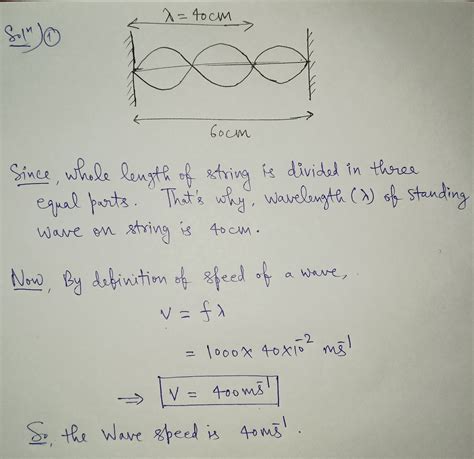 Solⁿ) ①
λ = 40cm
60cm
Since, whole length of string is divided in three
equal parts. That's why, wavelength (λ) of standing
wave on string is 40cm.
Now, By definition of speed of a wave,
V = fλ
= 1000 x 40x10⁻² ms⁻¹
⇒ V = 400ms⁻¹
So, the Wave speed is 40ms⁻¹.